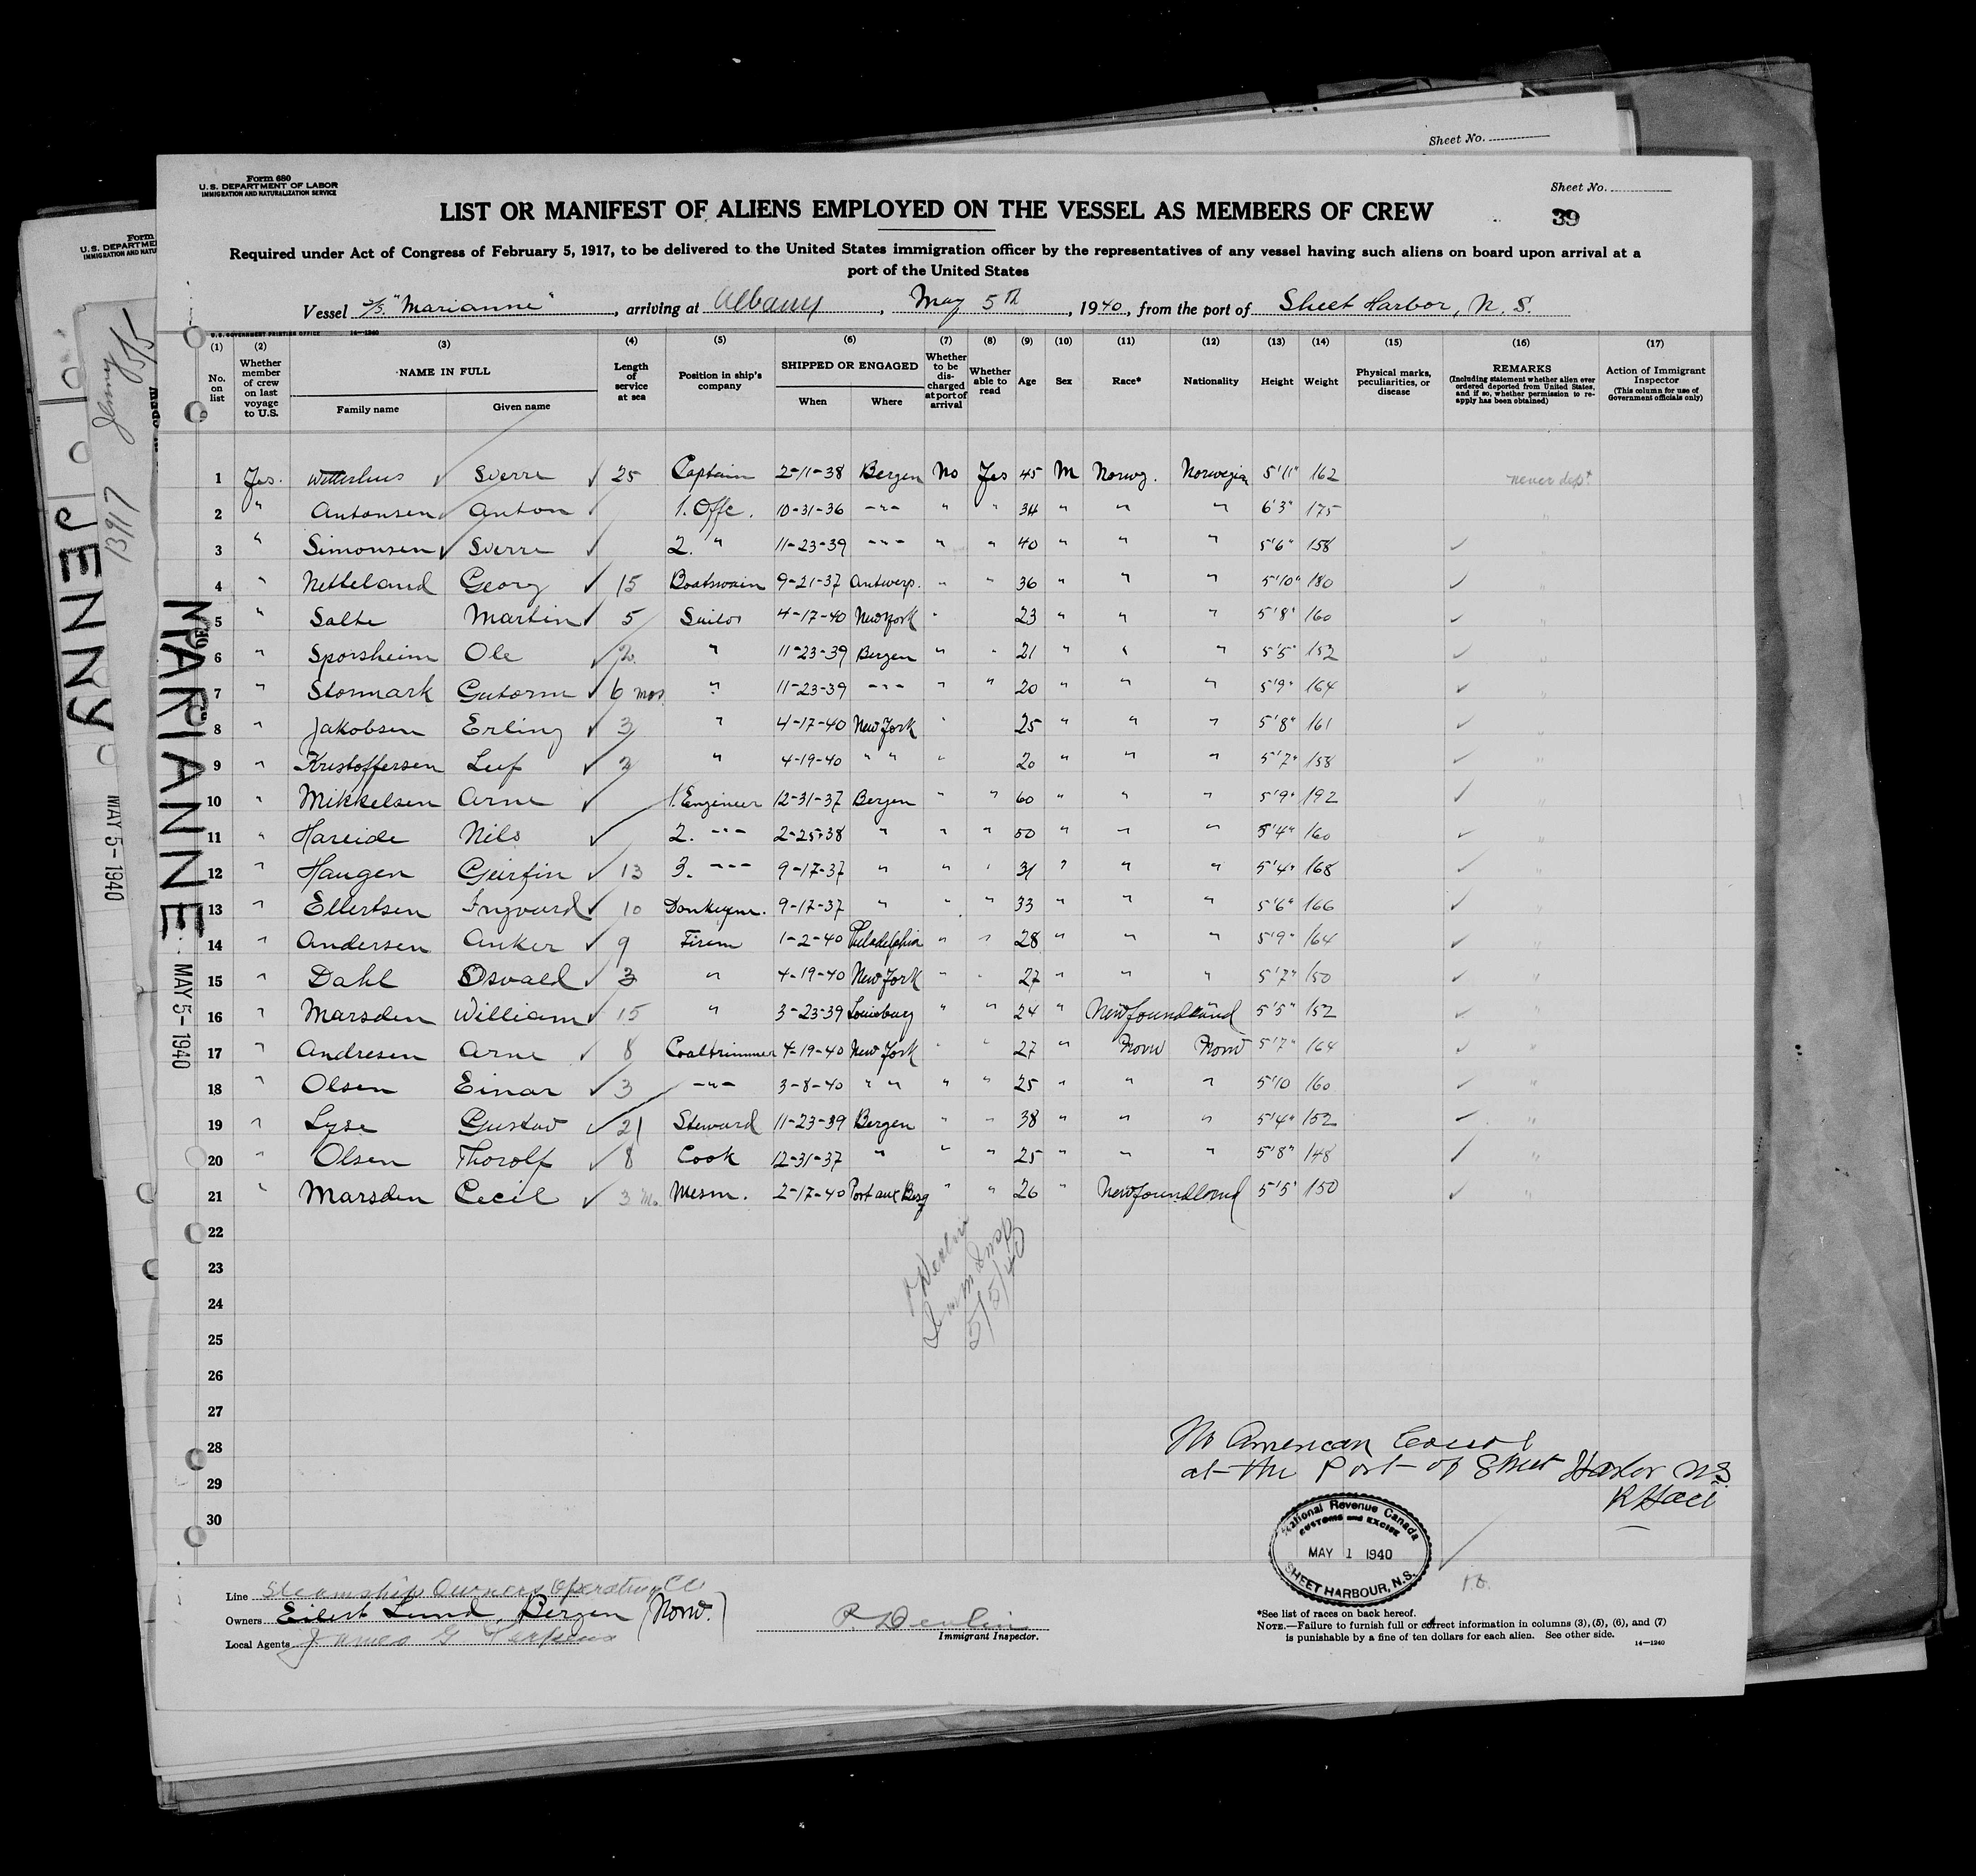 Sheet No.
Form 680
U.S. DEPARTMENT OF LABOR
IMMIGRATION AND NATURALIZATION SERVICE
Sheet No.
LIST OR MANIFEST OF ALIENS EMPLOYED ON THE VESSEL AS MEMBERS OF CREW
39
Required under Act of Congress of February 5, 1917, to be delivered to the United States immigration officer by the representatives of any vessel having such aliens on board upon arrival at a
port of the United States
Vessel S/S. "Marianne", arriving at Albany, May 5th, 1940, from the port of Sheet Harbor, N. S.
U.S. GOVERNMENT PRINTING OFFICE 14—1240
(1) (2) (3) (4) (5) (6) (7) (8) (9) (10) (11) (12) (13) (14) (15) (16) (17)
No. on list
Whether member of crew on last voyage to U.S.
NAME IN FULL
Family name Given name
Length of service at sea
Position in ship's company
SHIPPED OR ENGAGED
When Where
Whether to be discharged at port of arrival
Whether able to read
Age
Sex
Race*
Nationality
Height
Weight
Physical marks, peculiarities, or disease
REMARKS
(Including statement whether alien ever ordered deported from United States, and if so, whether permission to re-apply has been obtained)
Action of Immigrant Inspector
(This column for use of Government officials only)
1 Yes. Sverre 25 Captain 2-11-38 Bergen No Yes 45 M Norwg. Norwegia 5'11" 162 never dept
2 " Antonsen Anton 1. Offc. 10-31-36 -"- " " 34 " " " 6'3" 175 "
3 " Simonsen Sverre 2. " 11-23-39 -"- " " 40 " " " 5'6" 158 "
4 " Netteland Georg 15 Boatswain 9-21-37 Antwerp. " " 36 " " " 5'10" 180 "
5 " Salte Martin 5 Sailor 4-17-40 New York " 23 " " " 5'8" 160 "
6 " Sporsheim Ole 2 " 11-23-39 Bergen " " 21 " " " 5'5" 152 "
7 " Stormark Gutorm 6 mos. " 11-23-39 -"- " " 20 " " " 5'9" 164 "
8 " Jakobsen Erling 3 " 4-17-40 New York " 25 " " " 5'8" 161 "
9 " Kristoffersen Leif 2 " 4-19-40 " " " 20 " " " 5'7" 158 "
10 " Mikkelsen Arne 1. Engineer 12-31-37 Bergen " " 60 " " " 5'9" 192 "
11 " Hareide Nils 2. -"- 2-25-38 " " " 50 " " " 5'4" 160 "
12 " Haugen Geirfin 13 3. -"- 9-17-37 " " " 31 " " " 5'4" 168 "
13 " Ellertsen Ingvard 10 Donkeym. 9-17-37 " " " 33 " " " 5'6" 166 "
14 " Andersen Anker 9 Firem 1-2-40 Philadelphia " " 28 " " " 5'9" 164 "
15 " Dahl Osvald 3 " 4-19-40 New York " " 27 " " " 5'7" 150 "
16 " Marsden William 15 " 3-23-39 Louisburg " " 24 " Newfoundland 5'5" 152 "
17 " Andresen Arne 8 Coaltrimmer 4-19-40 New York " " 27 " Norw Norw 5'7" 164 "
18 " Olsen Einar 3 -"- 3-8-40 " " " " 25 " " " 5'10 160 "
19 " Lyse Gustav 21 Steward 11-23-39 Bergen " " 38 " " " 5'4" 152 "
20 " Olsen Thorolf 8 Cook 12-31-37 " " " 25 " " " 5'8" 148 "
21 " Marsden Cecil 3 Mo. Mesm. 2-17-40 Port aux Basq " " 26 " Newfoundland 5'5" 150 "
22
23
24
25
26
27
28
29
30
P Devlin
Imm Insp
5/5/40
No American Consul
at the Port of Sheet Harbor N.S.
National Revenue Canada
CUSTOMS and EXCISE
MAY 1 1940
SHEET HARBOUR, N.S.
Line Steamship Owners Operating Co
Owners Eilert Lund, Bergen (Norw.)
Local Agents James G
P. Devlin
Immigrant Inspector.
*See list of races on back hereof.
NOTE.—Failure to furnish full or correct information in columns (3), (5), (6), and (7)
is punishable by a fine of ten dollars for each alien. See other side.
14—1240
MARIANNE
MAY 5-1940
JENNY
MAY 5-1940
Jenny 5/5
13917
Form
U.S. DEPARTME
IMMIGRATION AND NATU